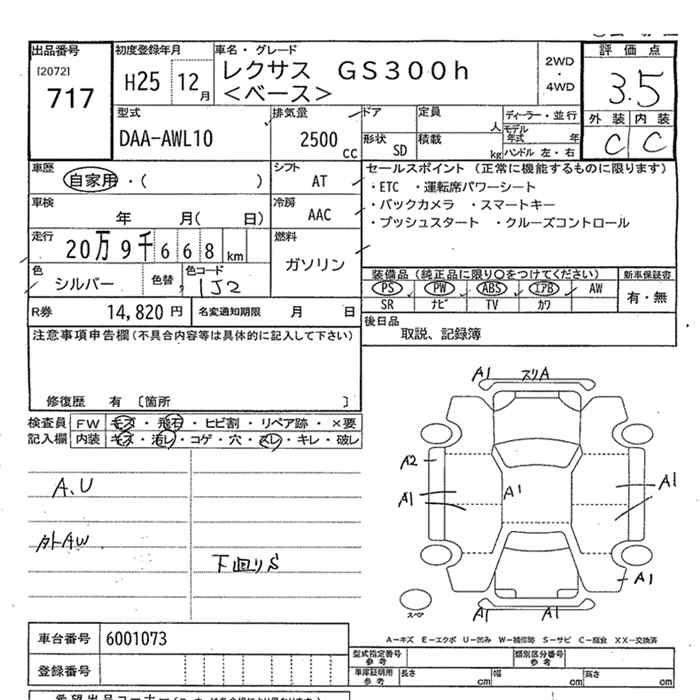 出品番号
[2072]
717
初度登録年月
H25 12月
車名・グレード
レクサス GS300h
<ベース>
2WD
・
4WD
評価点
3.5
外装 内装
C C
型式
DAA-AWL10
排気量
2500 CC
ドア
形状 SD
定員 人
積載 kg
ディーラー・並行
モデル年式 年
ハンドル 左・右
車歴
自家用・( )
シフト
AT
車検
年 月( 日)
冷房
AAC
走行
20万9千668km
燃料
ガソリン
色
シルバー
色替
色コード
1J2
R券 14,820円
名変通知期限 月 日
セールスポイント(正常に機能するものに限ります)
・ETC ・運転席パワーシート
・バックカメラ ・スマートキー
・プッシュスタート ・クルーズコントロール
装備品(純正品に限り○をつけてください)
新車保証書
PS PW ABS エアB AW
SR ナビ TV カワ
有・無
後日品
取説、記録簿
注意事項申告欄(不具合内容等は具体的に記入して下さい)
修復歴 有 〔箇所 〕
検査員記入欄
FW キズ・飛石・ヒビ割・リペア跡・×要
内装 キズ・汚レ・コゲ・穴・スレ・キレ・破レ
A.U
外AW
下回りS
A1 スリA
A2
A1
A1
A1
A1
スペア
A1 A1
A-キズ E-エクボ U-凹み W-補修跡 S-サビ C-腐食 XX-交換済
車台番号 6001073
登録番号
型式指定番号 参考
類別区分番号 参考
車庫証明用 参考
長さ cm 幅 cm 高さ cm